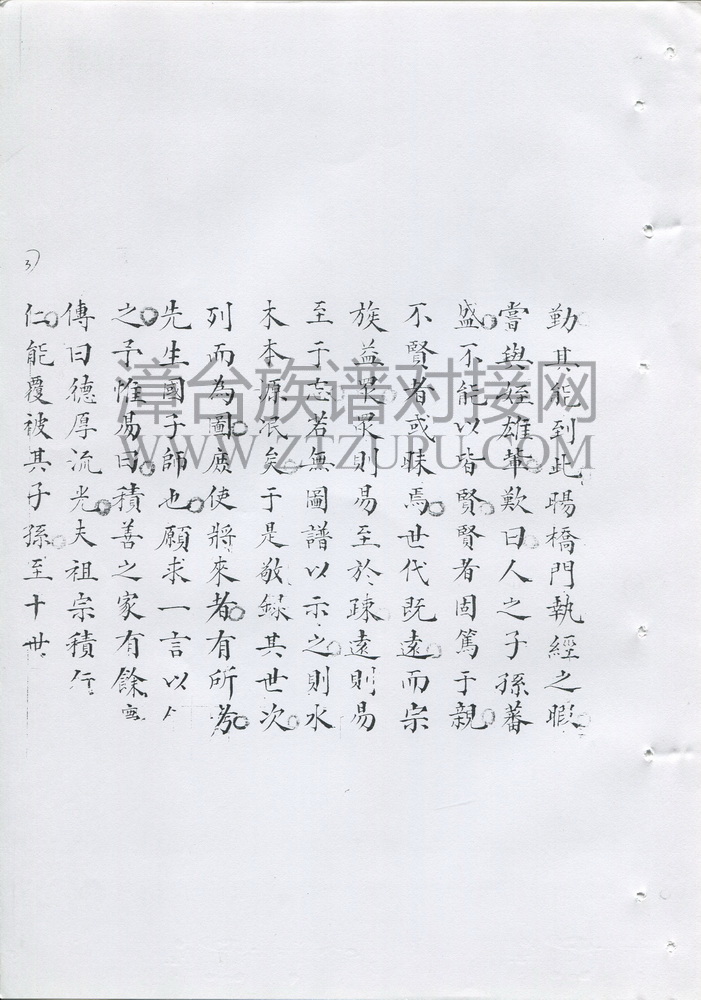 勤其能到此暘橋門執經之暇
嘗與姪雄華歎曰人之子孫蕃
盛不能以皆賢賢者固篤于親
不賢者或昧焉世代既遠而宗
族益眾眾則易至於疎遠則易
至于忘若無圖譜以示之則水
木本源泯矣于是敬録其世次
列而為圖庶使將來者有所
先生國子師也願求一言以
之予惟易曰積善之家有餘
傳曰德厚流光夫祖宗積行
仁能覆被其子孫至十世
3)
漳台族谱对接网
WWW.ZTZUPU.COM